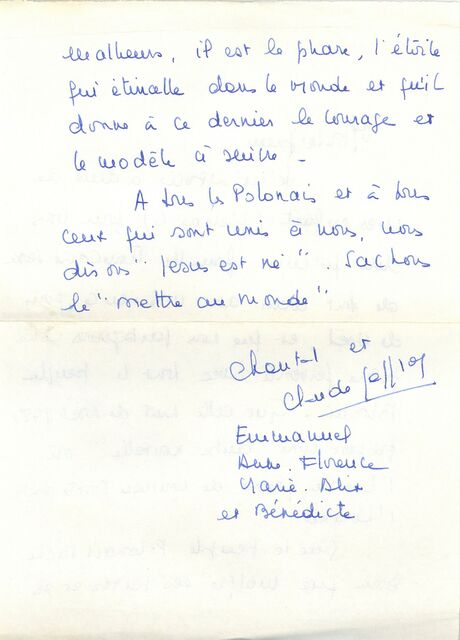 malheurs, il est le phare, l'étoile
qui étincelle dans le monde et qu'il
donne à ce dernier le courage et
le modèle à suivre -
A tous les Polonais et à tous
ceux qui sont unis à nous, nous
disons "Jesus est né". Sachons
le "mettre au monde"
Chantal et
Claude
Emmanuel
Anne. Florence
Marie. Alix
et Bénédicte